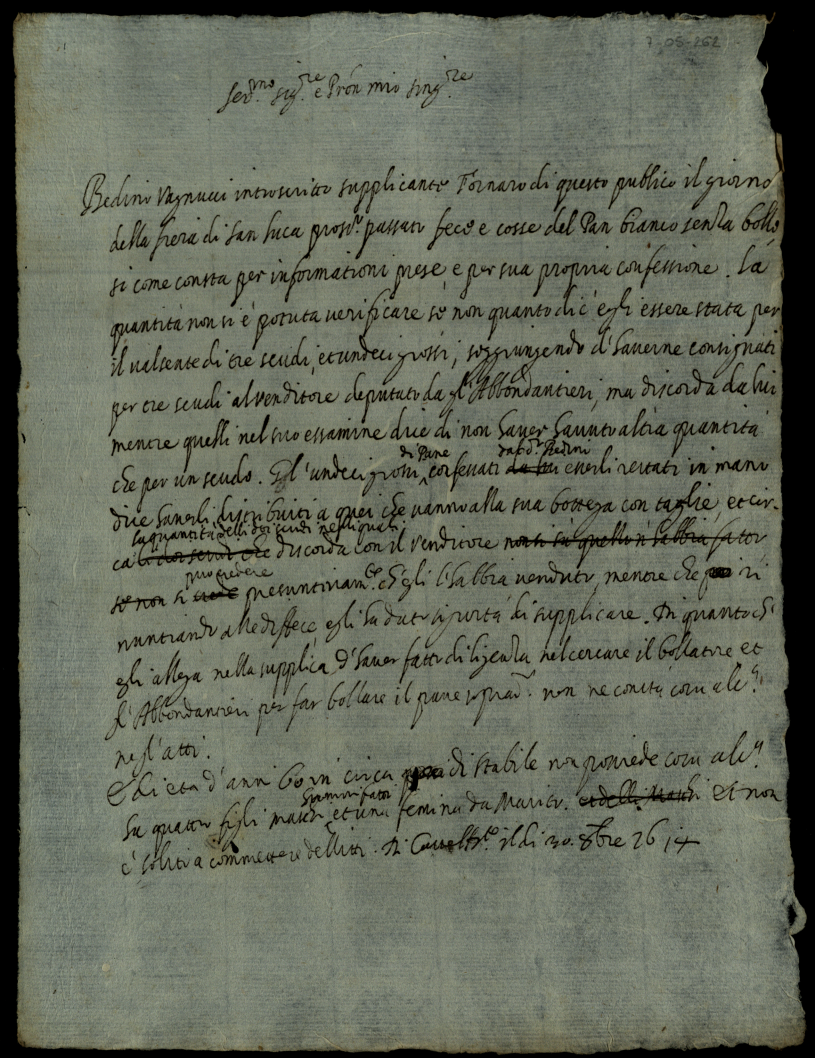 7-05-262
Ser.mo Sig.re e Pròn mio Sing.re
Bedino Vagnucci introscritto supplicante Fornaro di questo publico il giorno
della fiera di San Luca pross.o passato fece e cosse del Pan bianco senza bollo,
si come consta per informationi prese, e per sua propria confessione. La
quantità non si è potuta verificare se non quanto dic'egli essere stata per
il valsente di tre scudi, et undeci grossi, soggiungendo d'haverne consignati
per tre scudi al venditore deputato da gl'Abbondantieri, ma discorda da lui
mentre quelli nel suo essamine dice di non haver havuto altra quantità
di Pane dal d.o Bedino
che per un scudo. Gl'undeci grossi confessati da lui esserli restati in mano
dice haverli distribuiti a quei che vanno alla sua bottega con taglie, et cir-
la quantità delli doi scudi ne quali
ca discorda con il venditore non si sà quello n'habbia fatto
può credere
se non si crede presuntivam.te ch'egli l'habbia venduto, mentre che ri
nuntiando alle diffese, egli ha dato sicurtà di supplicare. In quanto ch'
egli allega nella supplica d'haver fatto diligenza nel cercare il bollatore et
gl'Abbondantieri per far bollare il pane soprad.o non ne consta cosa alc.a
negl'atti.
È di età d'anni 60 in circa di stabile non possiede cosa alc.a
ha quattro figli maschi et una femina da Marito. et delli Maschi et non
è solito a commettere delitti. Di il dì 30 8bre 1614